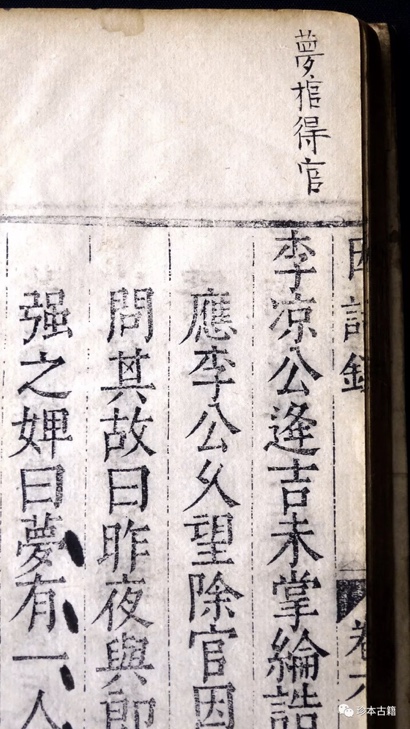 夢棺得官
因話録
卷六
李凉公逢吉未掌綸誥
應李公久望除官因
問其故曰昨夜與郎
强之婢曰夢有一人
珍本古籍